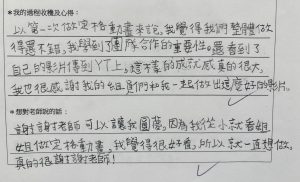 *我的過程收穫及心得:
以第一次做定格動畫來說,我覺得我們整體做
得還不錯,我學到了團隊合作的重要性。還看到了
自己的影片傳到YT上,想不到的成就感真的很大,
我也很感謝我的組員們和我一起做出這麼好的影片。
*想對老師說的話:
謝謝老師可以讓我圓夢,因為我從小就看姐
姐做定格動畫,我覺得很好看,所以就一直想做,
真的很謝謝老師!